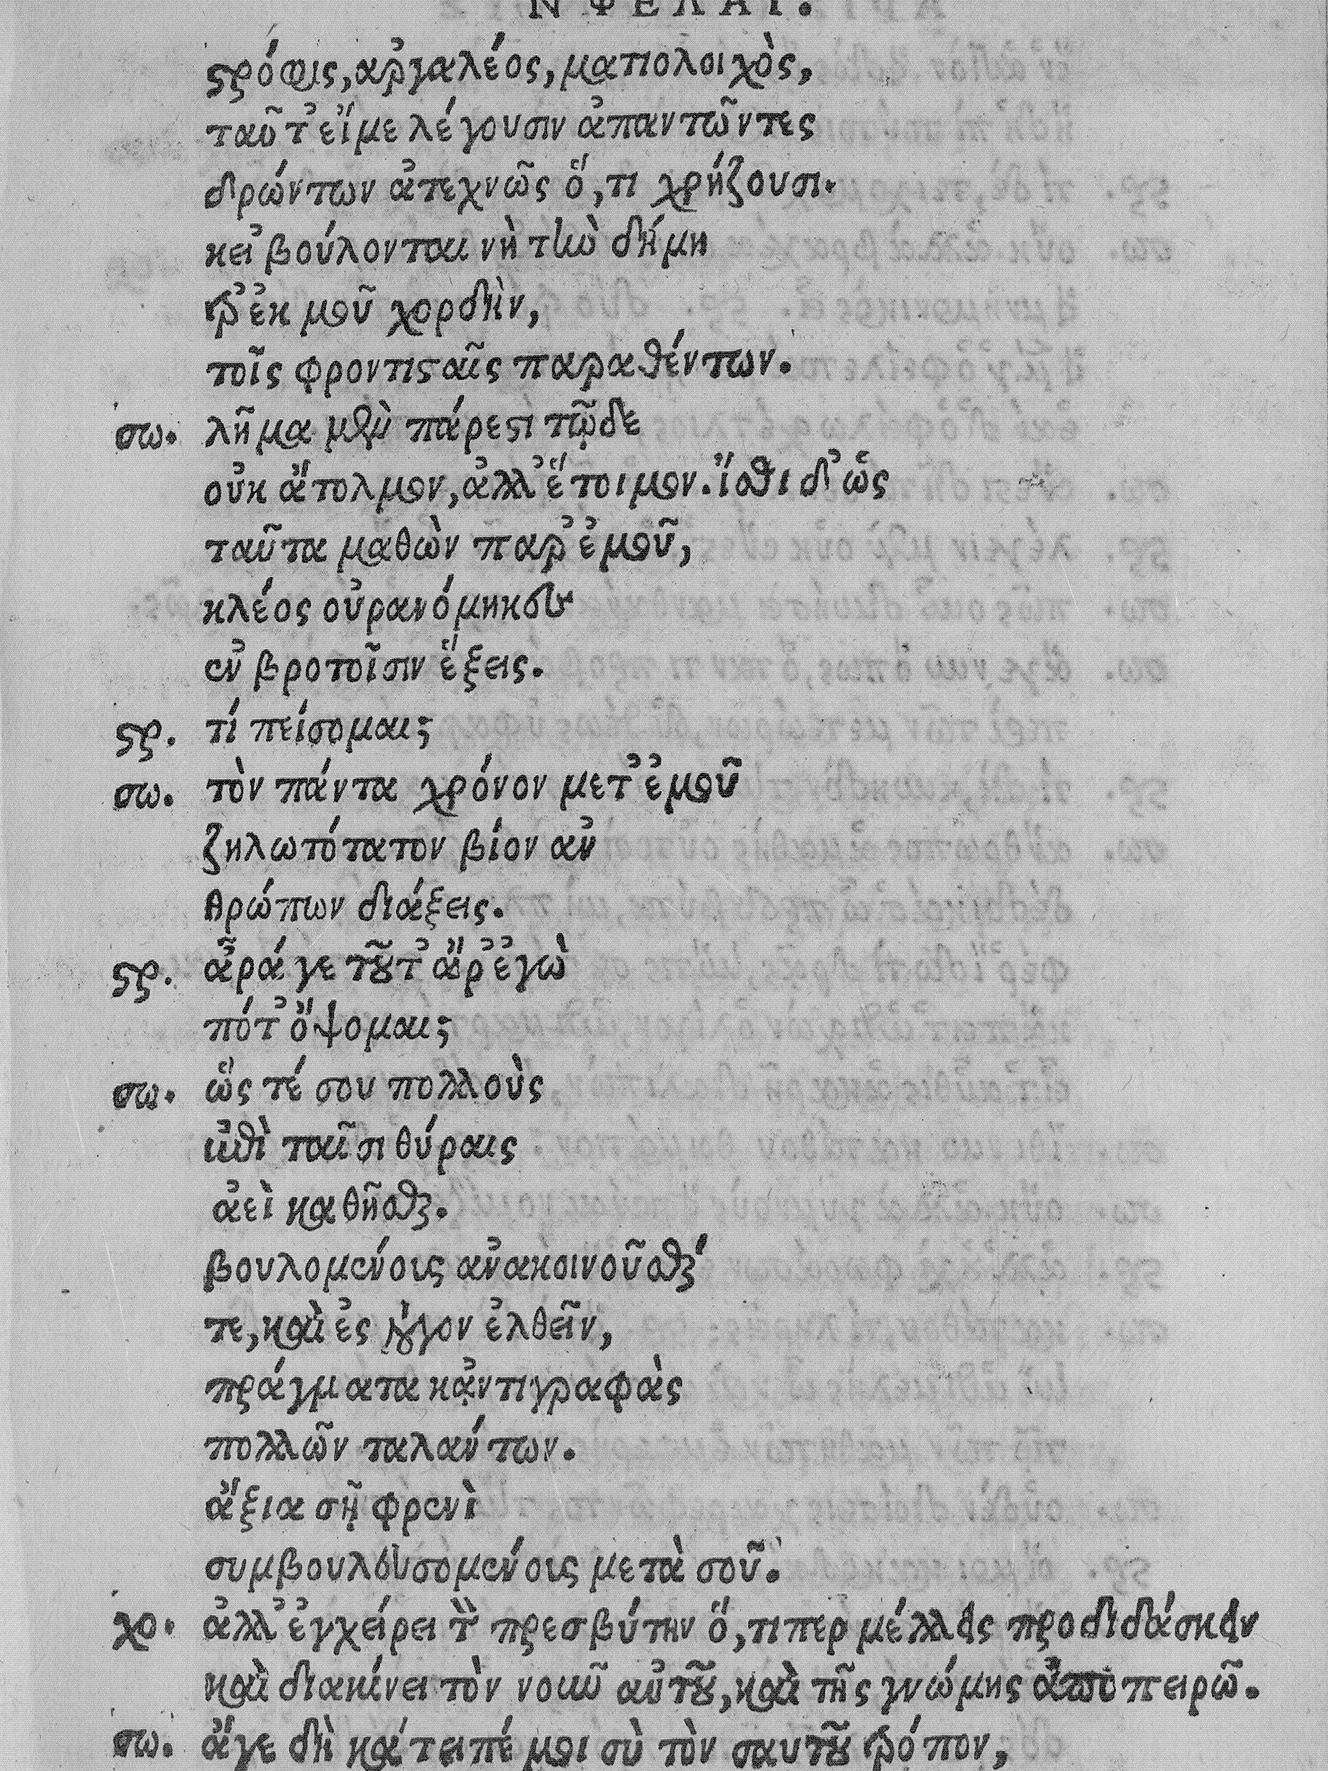 ΝΦΕΛΑΙ.
στρόφις, ἀργαλέος, ματιολοιχὸς,
ταῦτ' εἴ με λέγουσιν ἀπαντῶντες
δρώντων ἀτεχνῶς ὅ,τι χρήζουσι.
κεἰ βούλονται νὴ τὴν δήμη
τρ' ἐκ μοῦ χορδὴν,
τοῖς φροντισταῖς παραθέντων.
σω. λῆμα μὲν πάρεστι τῷδε
οὐκ ἄτολμον, ἀλλ' ἕτοιμον. ἴσθι δ' ὡς
ταῦτα μαθὼν παρ' ἐμοῦ,
κλέος οὐρανόμηκες
ἐν βροτοῖσιν ἕξεις.
στρ. τί πείσομαι;
σω. τὸν πάντα χρόνον μετ' ἐμοῦ
ζηλωτότατον βίον ἀν
θρώπων διάξεις.
στρ. ἆρά γε τοῦτ' ἄρ' ἐγὼ
πότ' ὄψομαι;
σω. ὥς τέ σου πολλοὺς
ἐπὶ ταῖσι θύραις
ἀεὶ καθῆσθαι.
βουλομένους ἀνακοινοῦσθαί
τε, καὶ ἐς λόγον ἐλθεῖν,
πράγματα κἀντιγραφὰς
πολλῶν ταλάντων.
ἄξια σῇ φρενὶ
συμβουλευσομένους μετὰ σοῦ.
χο. ἀλλ' ἐγχείρει τὸν πρεσβύτην ὅ,τιπερ μέλλεις προδιδάσκειν
καὶ διακίνει τὸν νοῦν αὐτοῦ, καὶ τῆς γνώμης ἀποπειρῶ.
σω. ἄγε δὴ κάτειπέ μοι σὺ τὸν σαυτοῦ τρόπον,